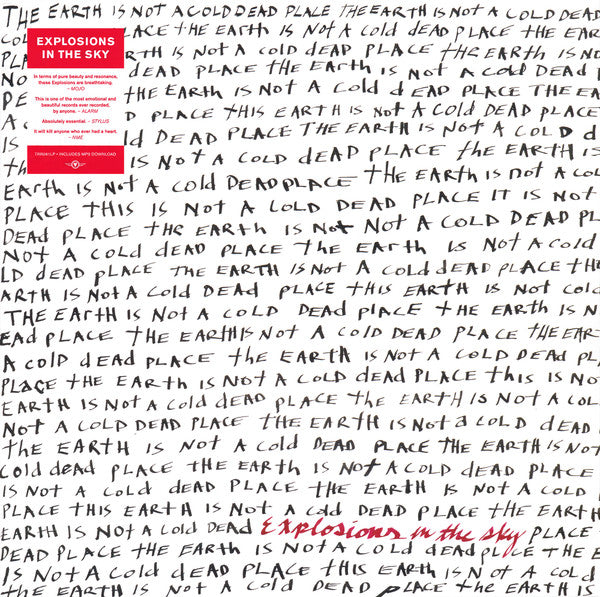 THE EARTH IS NOT A COLD DEAD PLACE THE EARTH IS NOT A COLD DEAD
COL ACE the EARTH IS NOT A COLD DEAD PLACE the EAR
NO IS NOT A COLD dEAD PLACE the EARTH IS NO
PLACE THE EARTH IS NOT A COLD DEAD
DE the EARTH IS NOT A COLD DEAD PLACE THE EA
A C DEAD PLACE THIS EARTH IS NOT A COLD DEAD PLACE
IS LD DEAD PLACE THE EARTH IS NOT A COLD D
th IS NOT A COLD dEAD PLACE the EARTH IS
EARth IS Not A cold DEAD PLACE THE EARTH IS NOT A COL
PLACE THIS IS NOT A COLD DEAD PLACE IT IS NOT
DEAD PLACE THE EARTH IS NOT NOT A COLD DEAD PL
NOT A COLD dEAD PLACE the EARTH IS NOT A COLD
LD DEAD PLACE THE EARTH IS NOT A COLD DEAD PLACE TH
ARTH IS NOT A COLD DEAD PLACE THIS EARTH IS NOT COLD
THE EARTH IS NOT A COLD DEAD PLACE THE EARTH IS NOT A C
EAD PLACE THE EARTH IS NOT A COLD DEAD PLACE THE EAR
A COLD dEAD PLACE the EARTH IS NOT A COLD DEAD PL
PLACE THE EARTH IS NOT A COLD DEAD PLACE THIS IS NO
EARTH IS NOT A COLD DEAD PLACE THE EARTH IS NOT A COL
NOT A COLD DEAD PLACE THE EARTH IS NOT A COLD DEAD
the EARTH IS NOT A COLD DEAD PLACE THE EARTH IS NOT
COLD dEAD PLACE THE EARTH IS NOT A COLD DEAD PLACE
IS NOT A COLD dEAD PLACE THE EARTH IS NOT A COLD
PLACE THIS EARTH IS NOT A COLD DEAD PLACE THE EARTH
EARTH IS NOT A COLD DEAD Explosions in the sky PLACE
DEAD PLACE THE EARTH IS NOT A COLD dEAD PLACE THE E
IS NOT A COLD DEAD PLACE THIS EARTH IS NOT A COLD
the EARTH IS NOT A COLD DEAD PLACE the EARTH IS
EXPLOSIONS
IN THE SKY
In terms of pure beauty and resonance,
these Explosions are breathtaking.
– MOJO
This is one of the most emotional and
beautiful records ever recorded,
by anyone. – ALARM
Absolutely essential. – STYLUS
It will kill anyone who ever had a heart.
– NME
TRR061LP • INCLUDES MP3 DOWNLOAD